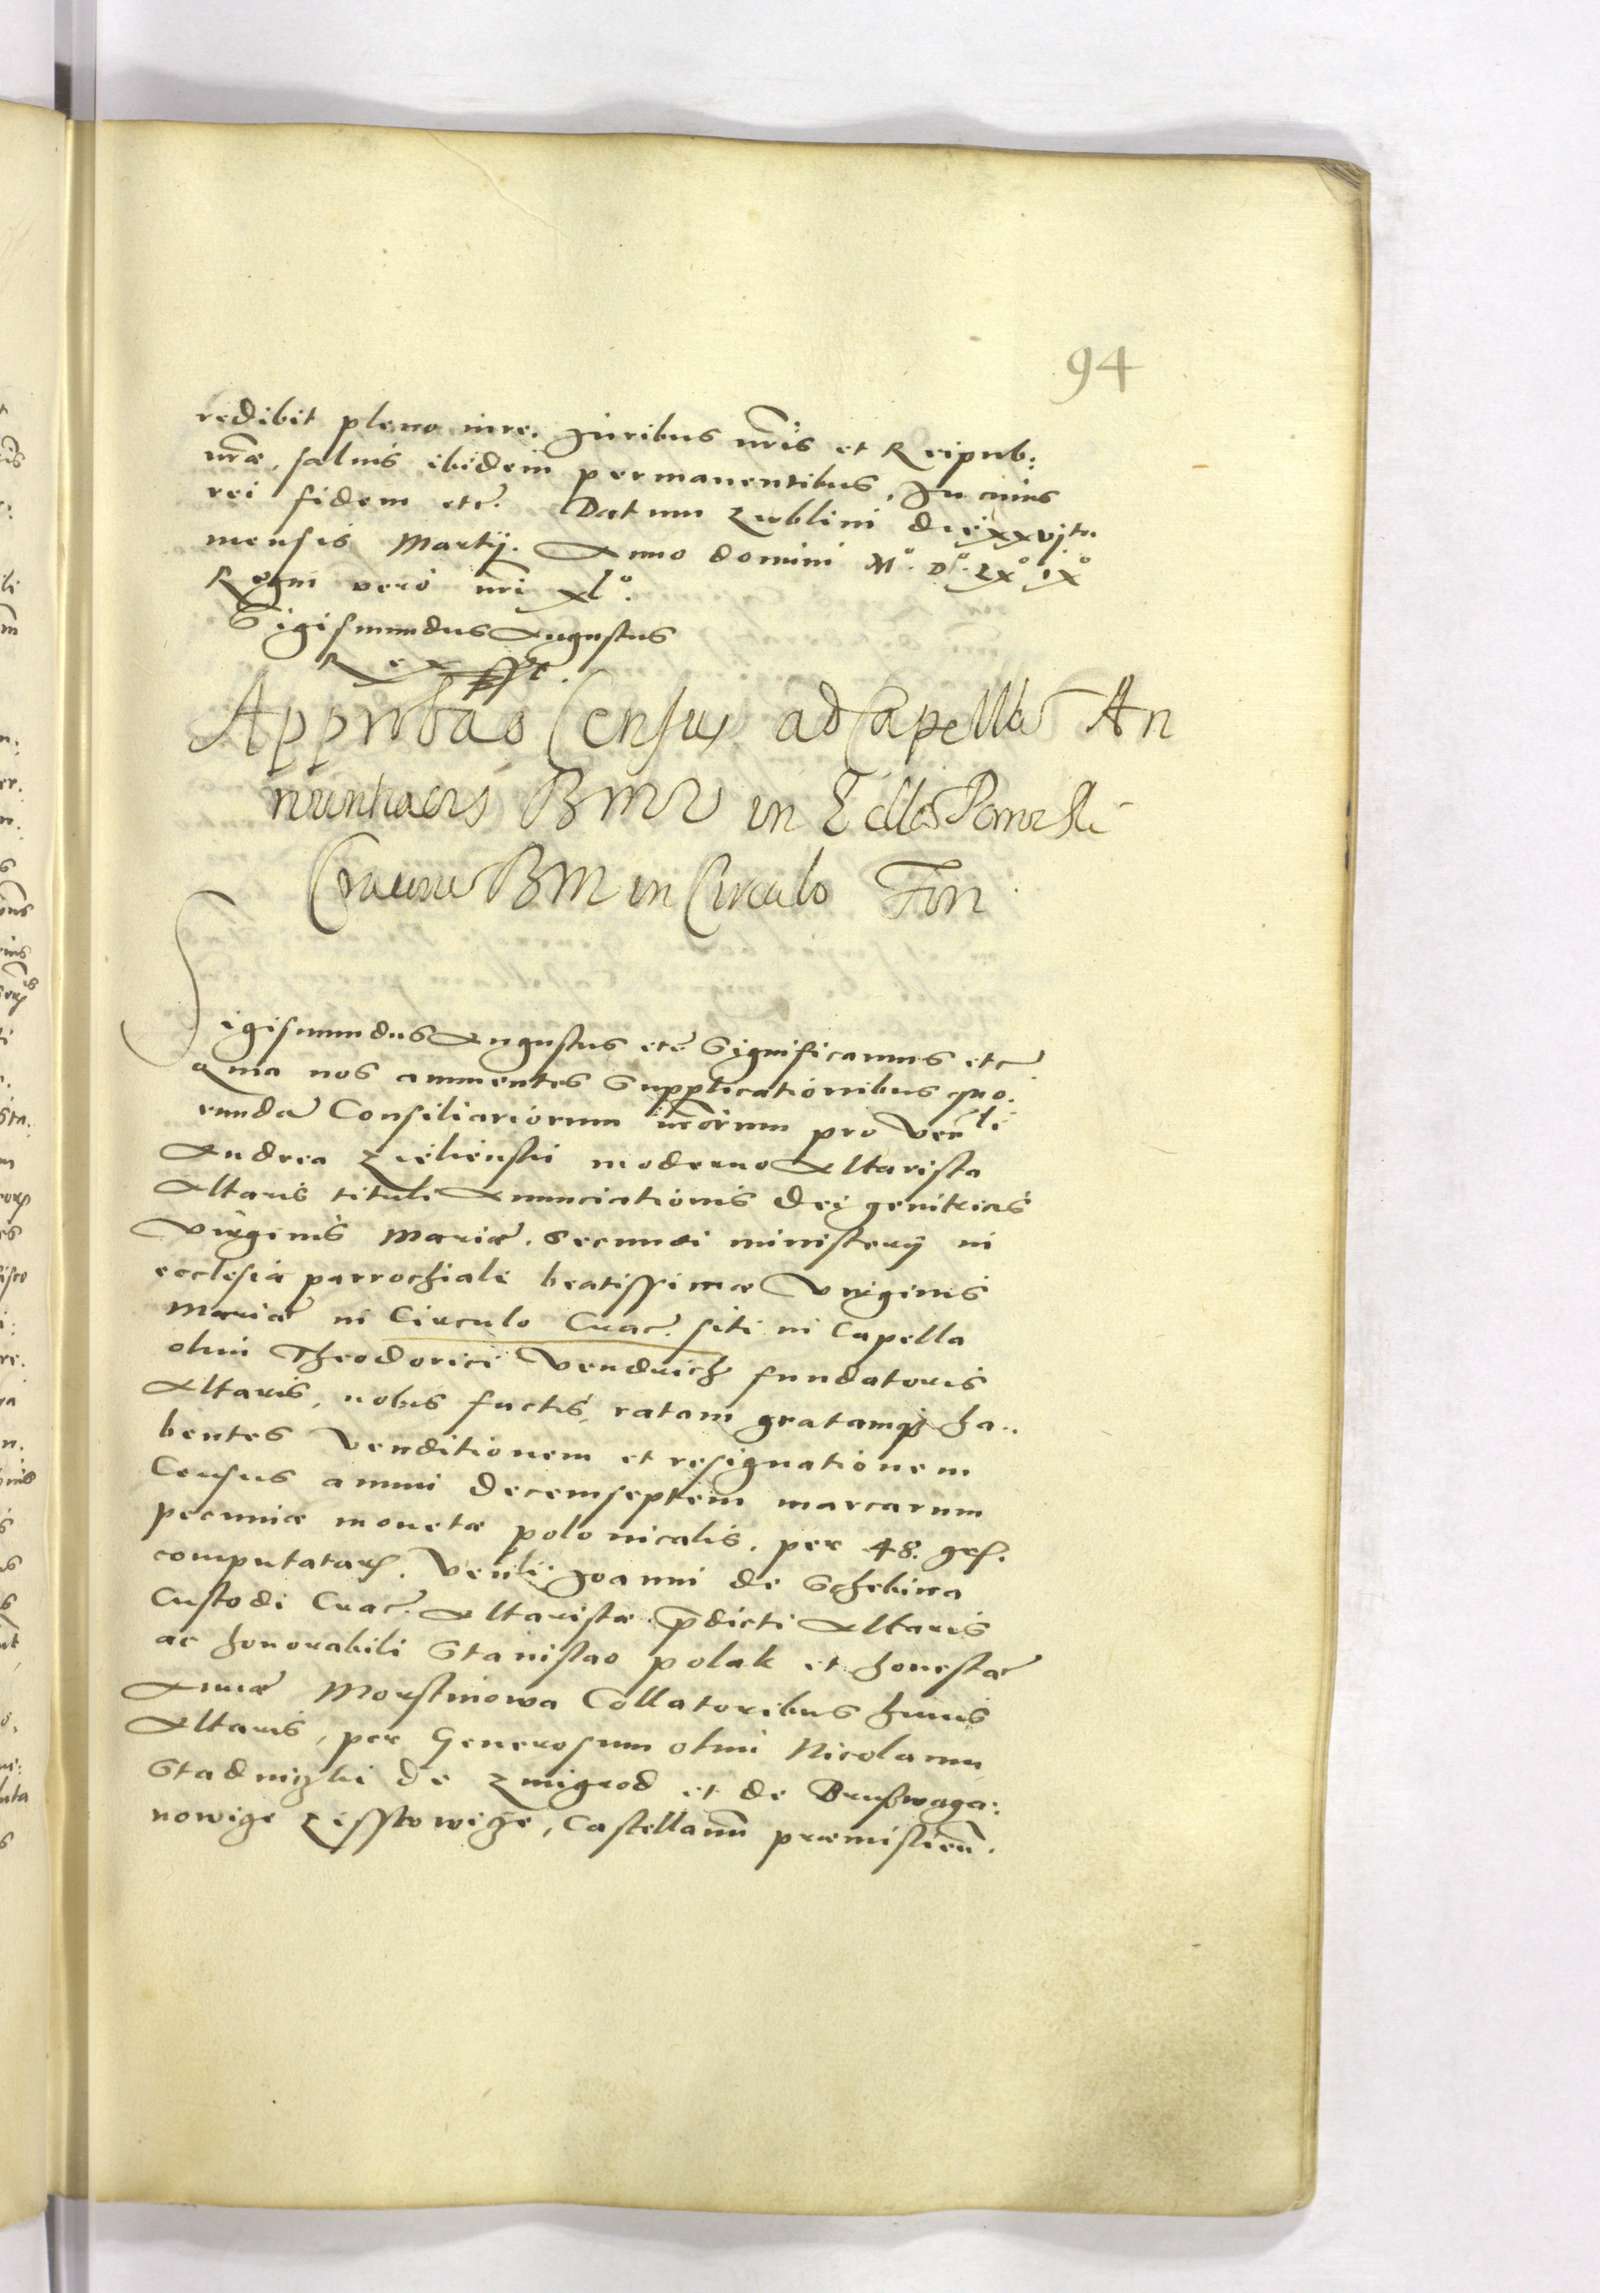 94
redibit pleno iure. Iuribus nr̃is et Reipub:
nr̃æ, saluis ibidem permanentibus, In cuius
rei fidem etc̃. Datum Lublini die xxvjta
mensis Martij. Anno domini Mº. Dº. LXº iXº
Regni vero nr̃i xlº.
Sigismundus Augustus
Rex sst.
Approbao Census ad Capellã An
nuntiaõis BMV in Ecclã
Cracoui BM in Circulo Fori
Sigismundus Augustus etc̃ Significamus etc̃
Quia nos annuentes Supplicationibus quo:
rundã Consiliariorum nr̃orum pro Ven̄li
Andrea Zielienski moderno Altarista
Altaris tituli Anunciationis Dei genitricis
Virginis Mariæ. Secundi ministerij in
ecclesia parrochiali beatissimæ Virginis
Mariæ in Circulo Crac̃. siti in Capella
olim Theodorici Vendrich fundatoris
Altaris, nobis factis, ratam gratamq; ha..
bentes Venditionem et resignationem
Census annui decemseptem marcarum
pecuniæ monetæ polonicalis, per 48. grs.
computatarũ. Ven̄li Ioanni de Schebina
Custodi Crac̃. Altaristæ p̃dicti Altaris
ac honorabili Stanislao polak et honestæ
Annæ Morstinowa Collatoribus huius
Altaris, per Generosum olim Nicolaum
Stadniczki de Zmigrod et de
nowicze Lisskowicze, Castellanũ præmislien̄.